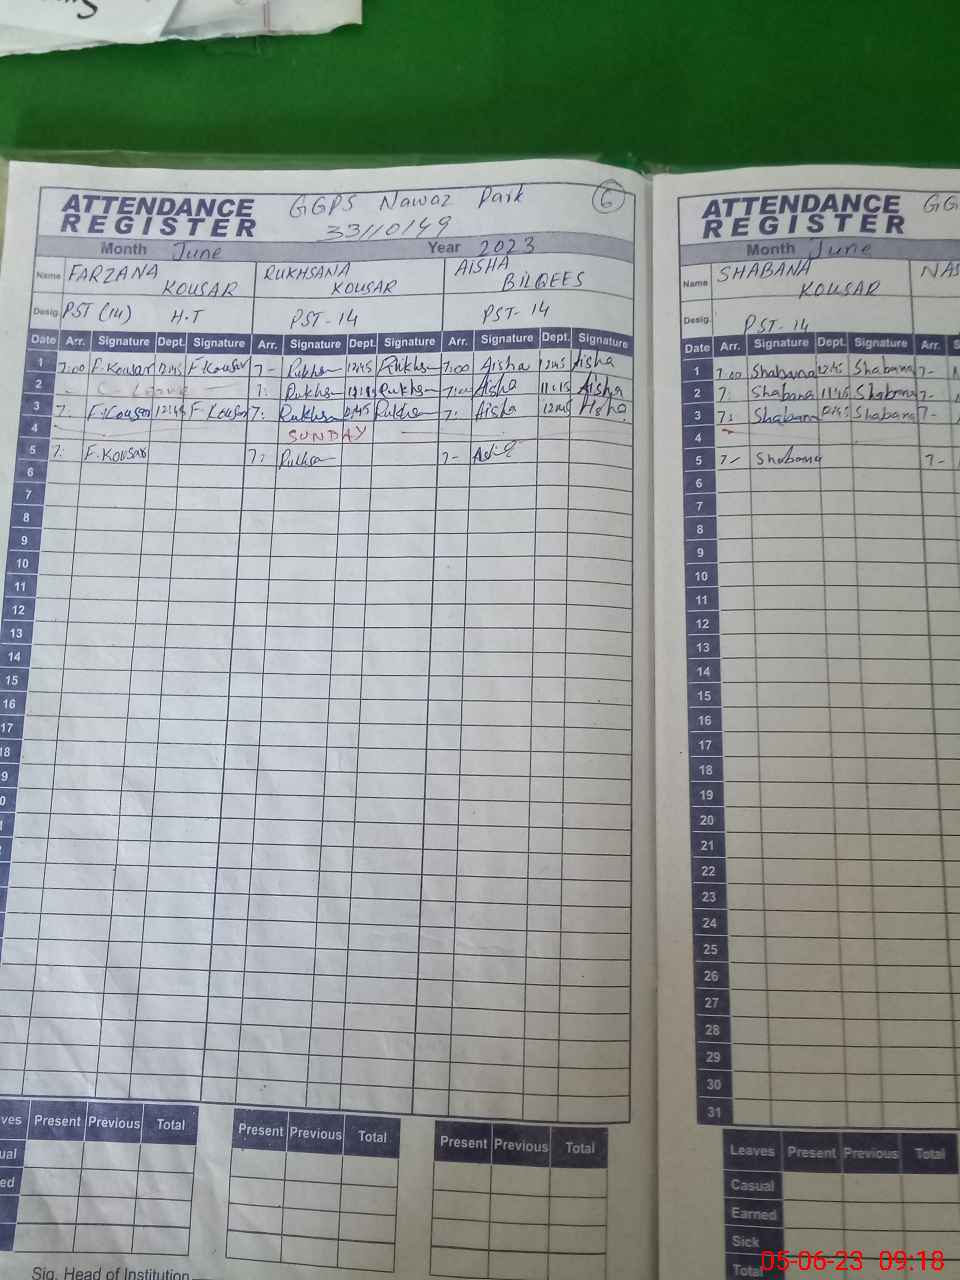 ATTENDANCE REGISTER GGPS Nawaz Park 6
33110149
Month June Year 2023
Name FARZANA KOUSAR RUKHSANA KOUSAR AISHA BILQEES
Desig. PST (14) H.T PST-14 PST-14
Date Arr. Signature Dept. Signature Arr. Signature Dept. Signature Arr. Signature Dept. Signature
1 7:00 F.Kousar 12:45 F.Kousar 7- Rukhs 12:45 Rukhs 7:00 Aisha 12:45 Aisha
2 C Leave 7: Rukhs Rukhs 7:00 Aisha 11:15 Aisha
3 7: F.Kousar 12:45 F.Kousar 7: Rukhs 12:45 Rukhs 7: Aisha 12:45 Aisha
4 SUNDAY
5 7: F.Kousar 7: Rukhsa 7-
6
7
8
9
10
11
12
13
14
15
16
17
18
9
0
1
2
ves Present Previous Total Present Previous Total Present Previous Total
ual
ed
Sig. Head of Institution
ATTENDANCE REGISTER GG
Month June
Name SHABANA KOUSAR NAS
Desig. PST-14
Date Arr. Signature Dept. Signature Arr. S
1 7:00 Shabana 12:45 Shabana 7-
2 7: Shabana 11:15 Shabana 7-
3 7: Shabana 12:45 Shabana 7-
4
5 7- Shabana 7-
6
7
8
9
10
11
12
13
14
15
16
17
18
19
20
21
22
23
24
25
26
27
28
29
30
31
Leaves Present Previous Total
Casual
Earned
Sick
Total
05-06-23 09:18